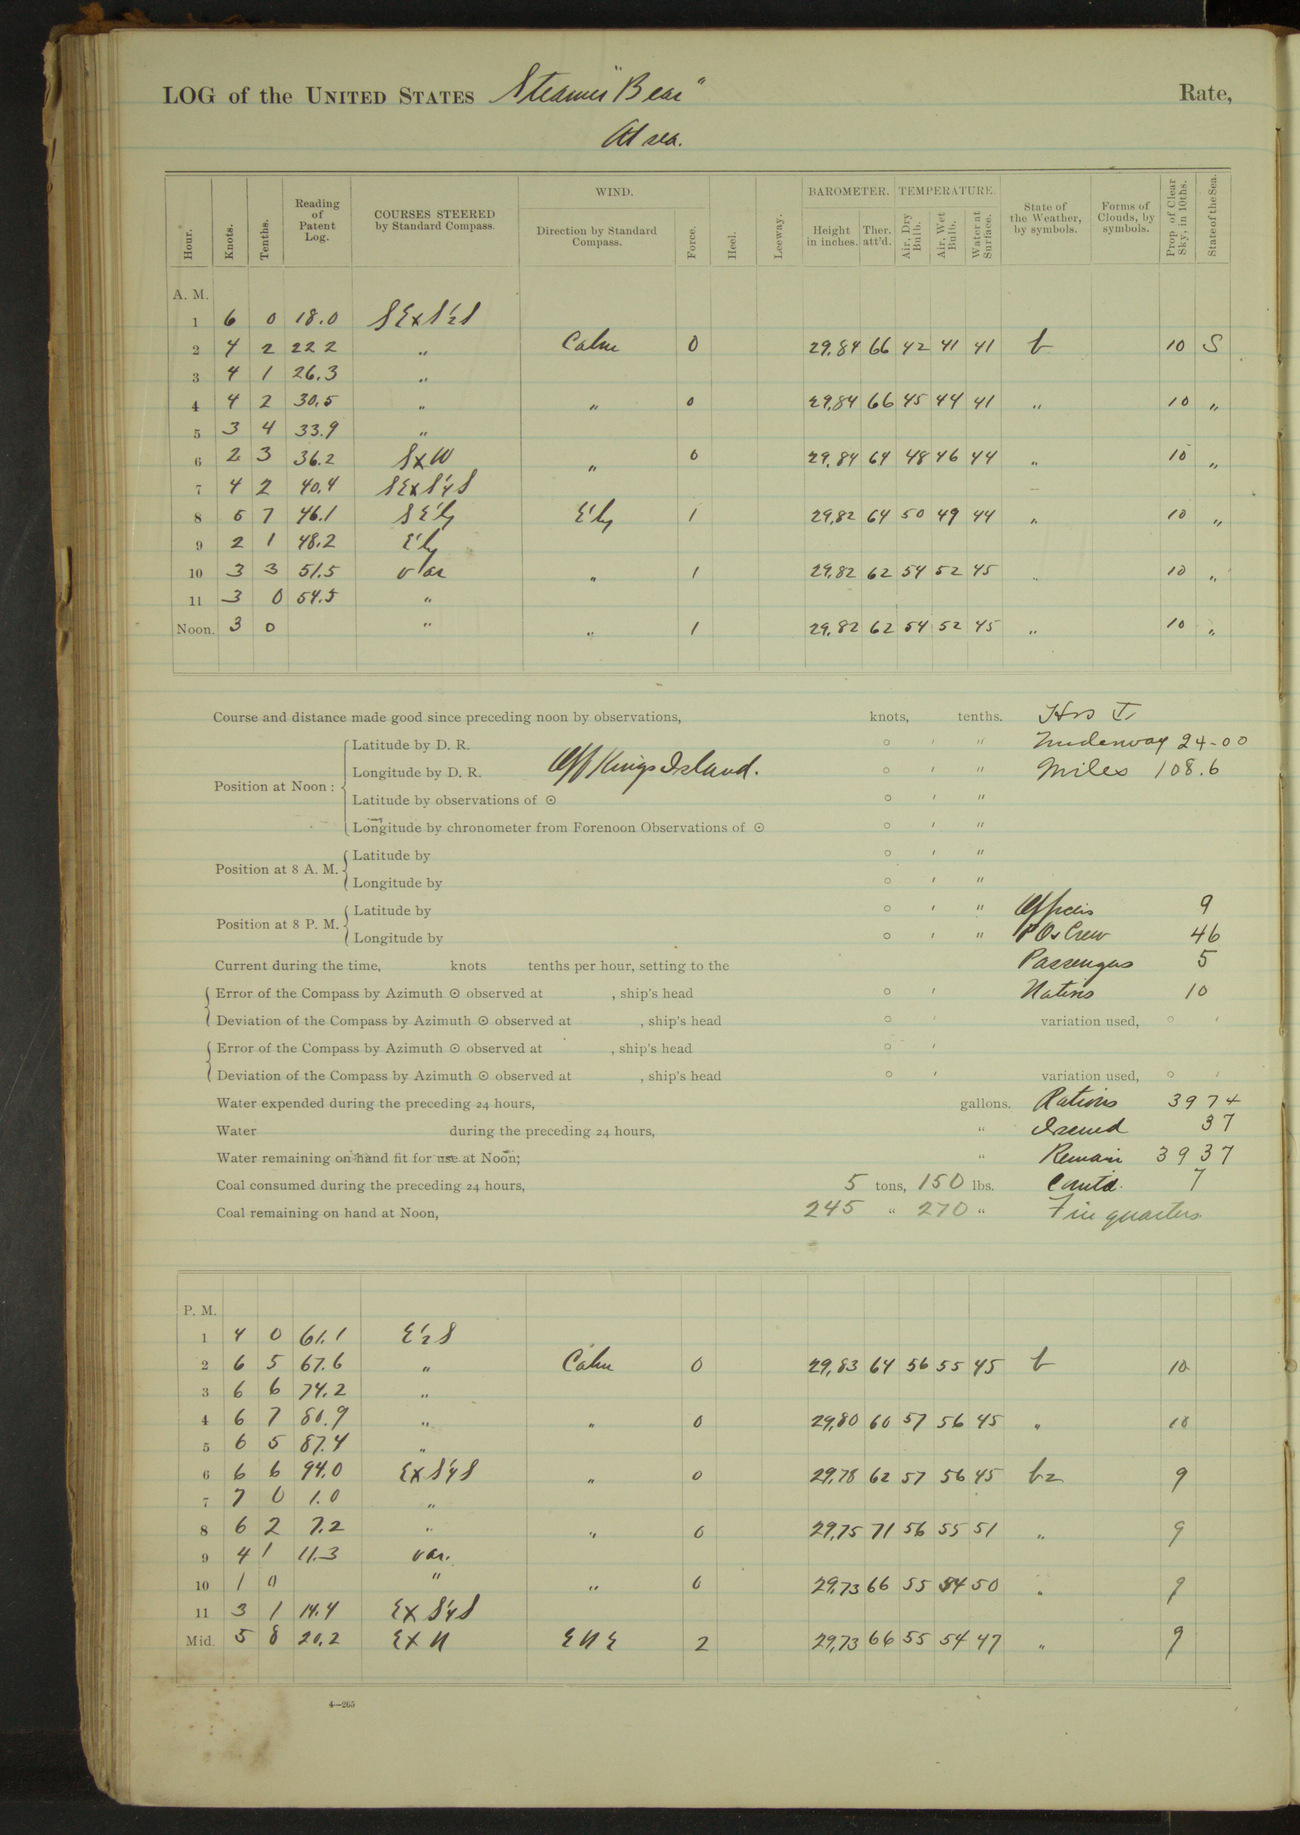 LOG of the UNITED STATES Steamer "Bear" Rate,
At sea.
Hour. Knots. Tenths. Reading of Patent Log. COURSES STEERED by Standard Compass. WIND. Direction by Standard Compass. Force. Heel. Leeway. BAROMETER. Height in inches. Ther. att'd. TEMPERATURE. Air, Dry Bulb. Air, Wet Bulb. Water at Surface. State of the Weather, by symbols. Forms of Clouds, by symbols. Prop. of Clear Sky, in 10ths. State of the Sea.
A. M.
1 6 0 18.0 SExS½S
2 4 2 22 2 " Calm 0 29.84 66 42 41 41 b 10 S
3 4 1 26.3 "
4 4 2 30.5 " " 0 29.84 66 45 44 41 " 10 "
5 3 4 33.9 "
6 2 3 36.2 SxW " 0 29.84 64 48 46 44 " 10 "
7 4 2 40.4 SExS¼S
8 5 7 46.1 SE'ly E'ly 1 29.82 64 50 49 44 " 10 "
9 2 1 48.2 E'ly
10 3 3 51.5 var " 1 29.82 62 54 52 45 " 10 "
11 3 0 54.5 "
Noon. 3 0 " " 1 29.82 62 54 52 45 " 10 "
Course and distance made good since preceding noon by observations, knots, tenths. Hrs T.
Latitude by D. R. ° ' " Underway 24-00
Position at Noon : Longitude by D. R. Off Kings Island. ° ' " Miles 108.6
Latitude by observations of ☉ ° ' "
Longitude by chronometer from Forenoon Observations of ☉ ° ' "
Position at 8 A. M. Latitude by ° ' "
Longitude by ° ' "
Position at 8 P. M. Latitude by ° ' " Officers 9
Longitude by ° ' " P Os Crew 46
Current during the time, knots tenths per hour, setting to the Passengers 5
Error of the Compass by Azimuth ☉ observed at , ship's head ° ' Natives 10
Deviation of the Compass by Azimuth ☉ observed at , ship's head ° ' variation used, ° '
Error of the Compass by Azimuth ☉ observed at , ship's head ° '
Deviation of the Compass by Azimuth ☉ observed at , ship's head ° ' variation used, ° '
Water expended during the preceding 24 hours, gallons. Rations 3974
Water during the preceding 24 hours, " Issued 37
Water remaining on hand fit for use at Noon; " Remain 3937
Coal consumed during the preceding 24 hours, 5 tons, 150 lbs. Comtd. 7
Coal remaining on hand at Noon, 245 " 270 " Fire quarters
P. M.
1 4 0 61.1 E½S
2 6 5 67.6 " Calm 0 29.83 64 56 55 45 b 10
3 6 6 74.2 "
4 6 7 80.9 " " 0 29.80 60 57 56 45 " 10
5 6 5 87.4 "
6 6 6 94.0 ExS¼S " 0 29.78 62 57 56 45 bz 9
7 7 0 1.0 "
8 6 2 7.2 " " 0 29.75 71 56 55 51 " 9
9 4 1 11.3 var.
10 1 0 " " 0 29.73 66 55 54 50 " 9
11 3 1 14.4 ExS¼S
Mid. 5 8 20.2 ExN ENE 2 29.73 66 55 54 47 " 9
4—265